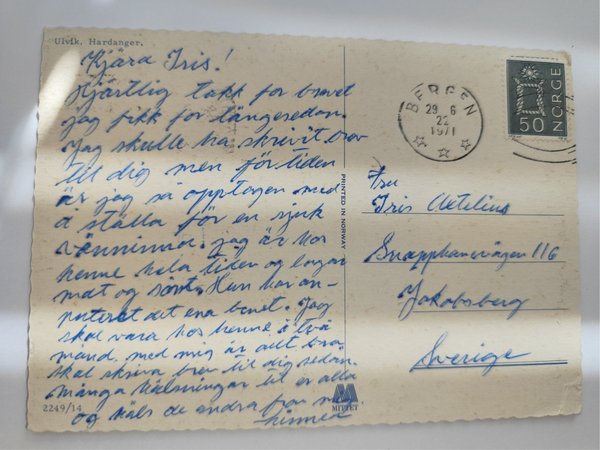 Ulvik, Hardanger.
Kjära Iris!
Hjärtlig takk for brevet
jag fikk for längesedan.
Jag skulle ha skrivit brev
til dig men för tiden
är jag så opptagen med
å ställa för en sjuk
väninna. jag är hos
henne hela tiden og lagar
mat og sånt. Hun har am-
puteret det ena benet. Jag
skal vara hos henne i två
månd. med mig är allt bra
skal skriva brev til dig sedan.
många hälsningar til er alla
og häls de andra från mig
2249/14
MITTET
PRINTED IN NORWAY
BERGEN
29 6
22
1971
50
NORGE
Fru
Iris Aetelius
Snapphanevägen 116
Jakobsberg
Sverige